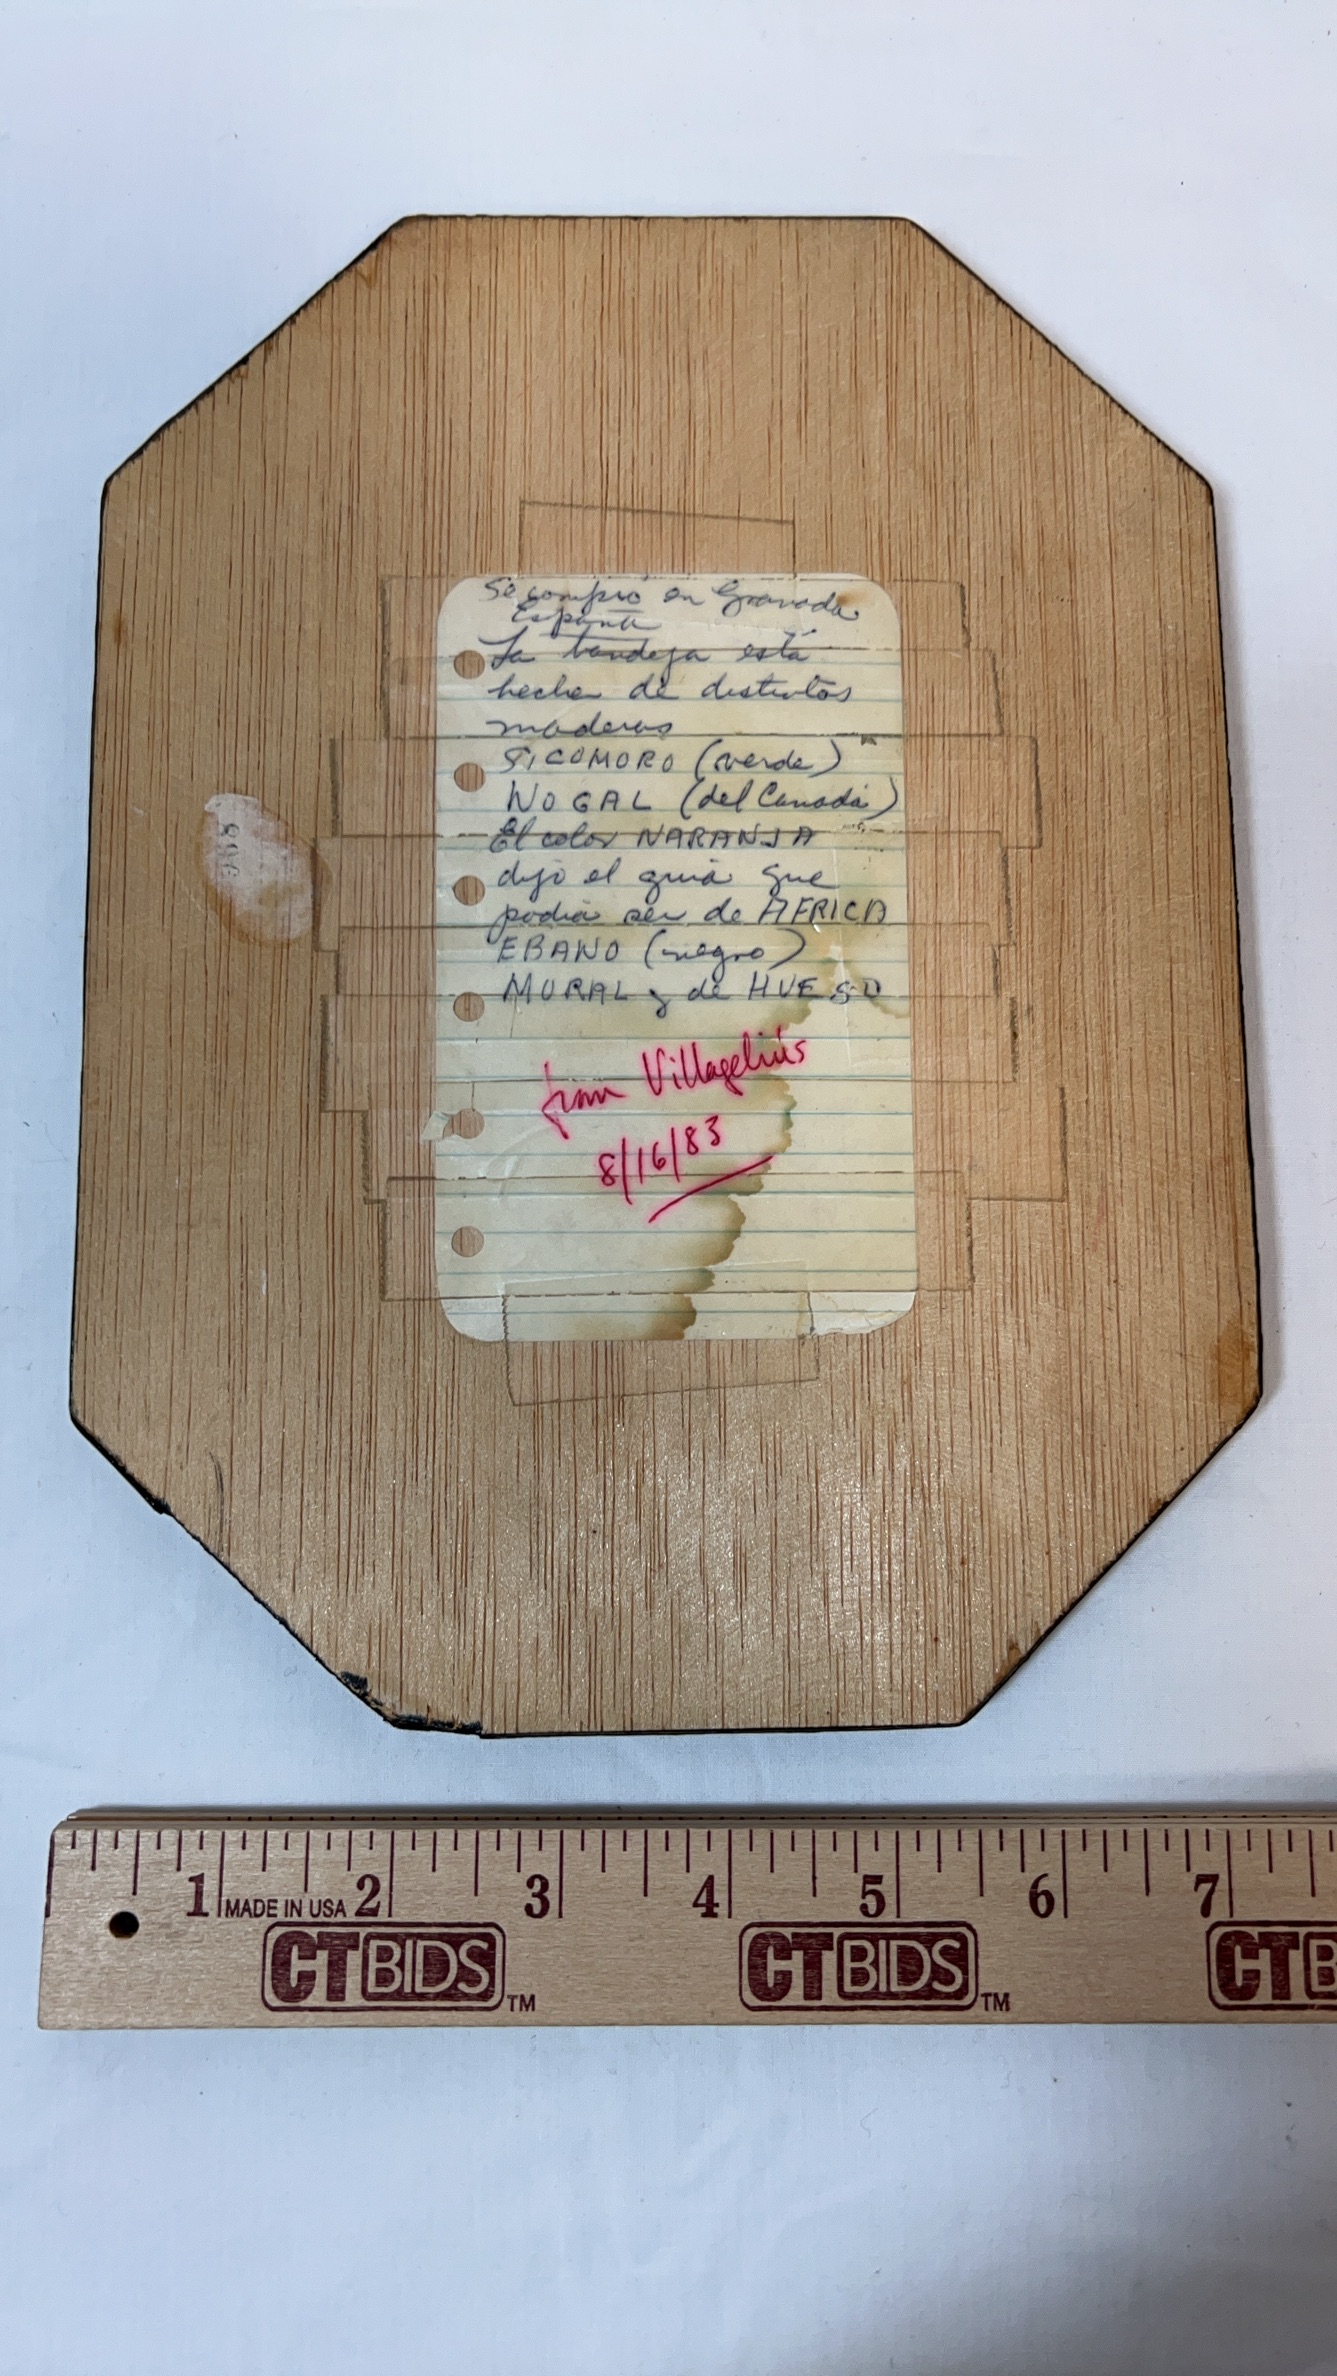 Se compro en Granada
España
La bandeja está
hecha de distintas
maderas
SICOMORO (verde)
NOGAL (del Canadá)
El color NARANJA
dijo el guia que
podia ser de AFRICA
EBANO (negro)
MORAL y de HUESO
Villagelius
8/16/83
1 MADE IN USA 2 3 4 5 6 7
CTBIDS™ CTBIDS™ CTB